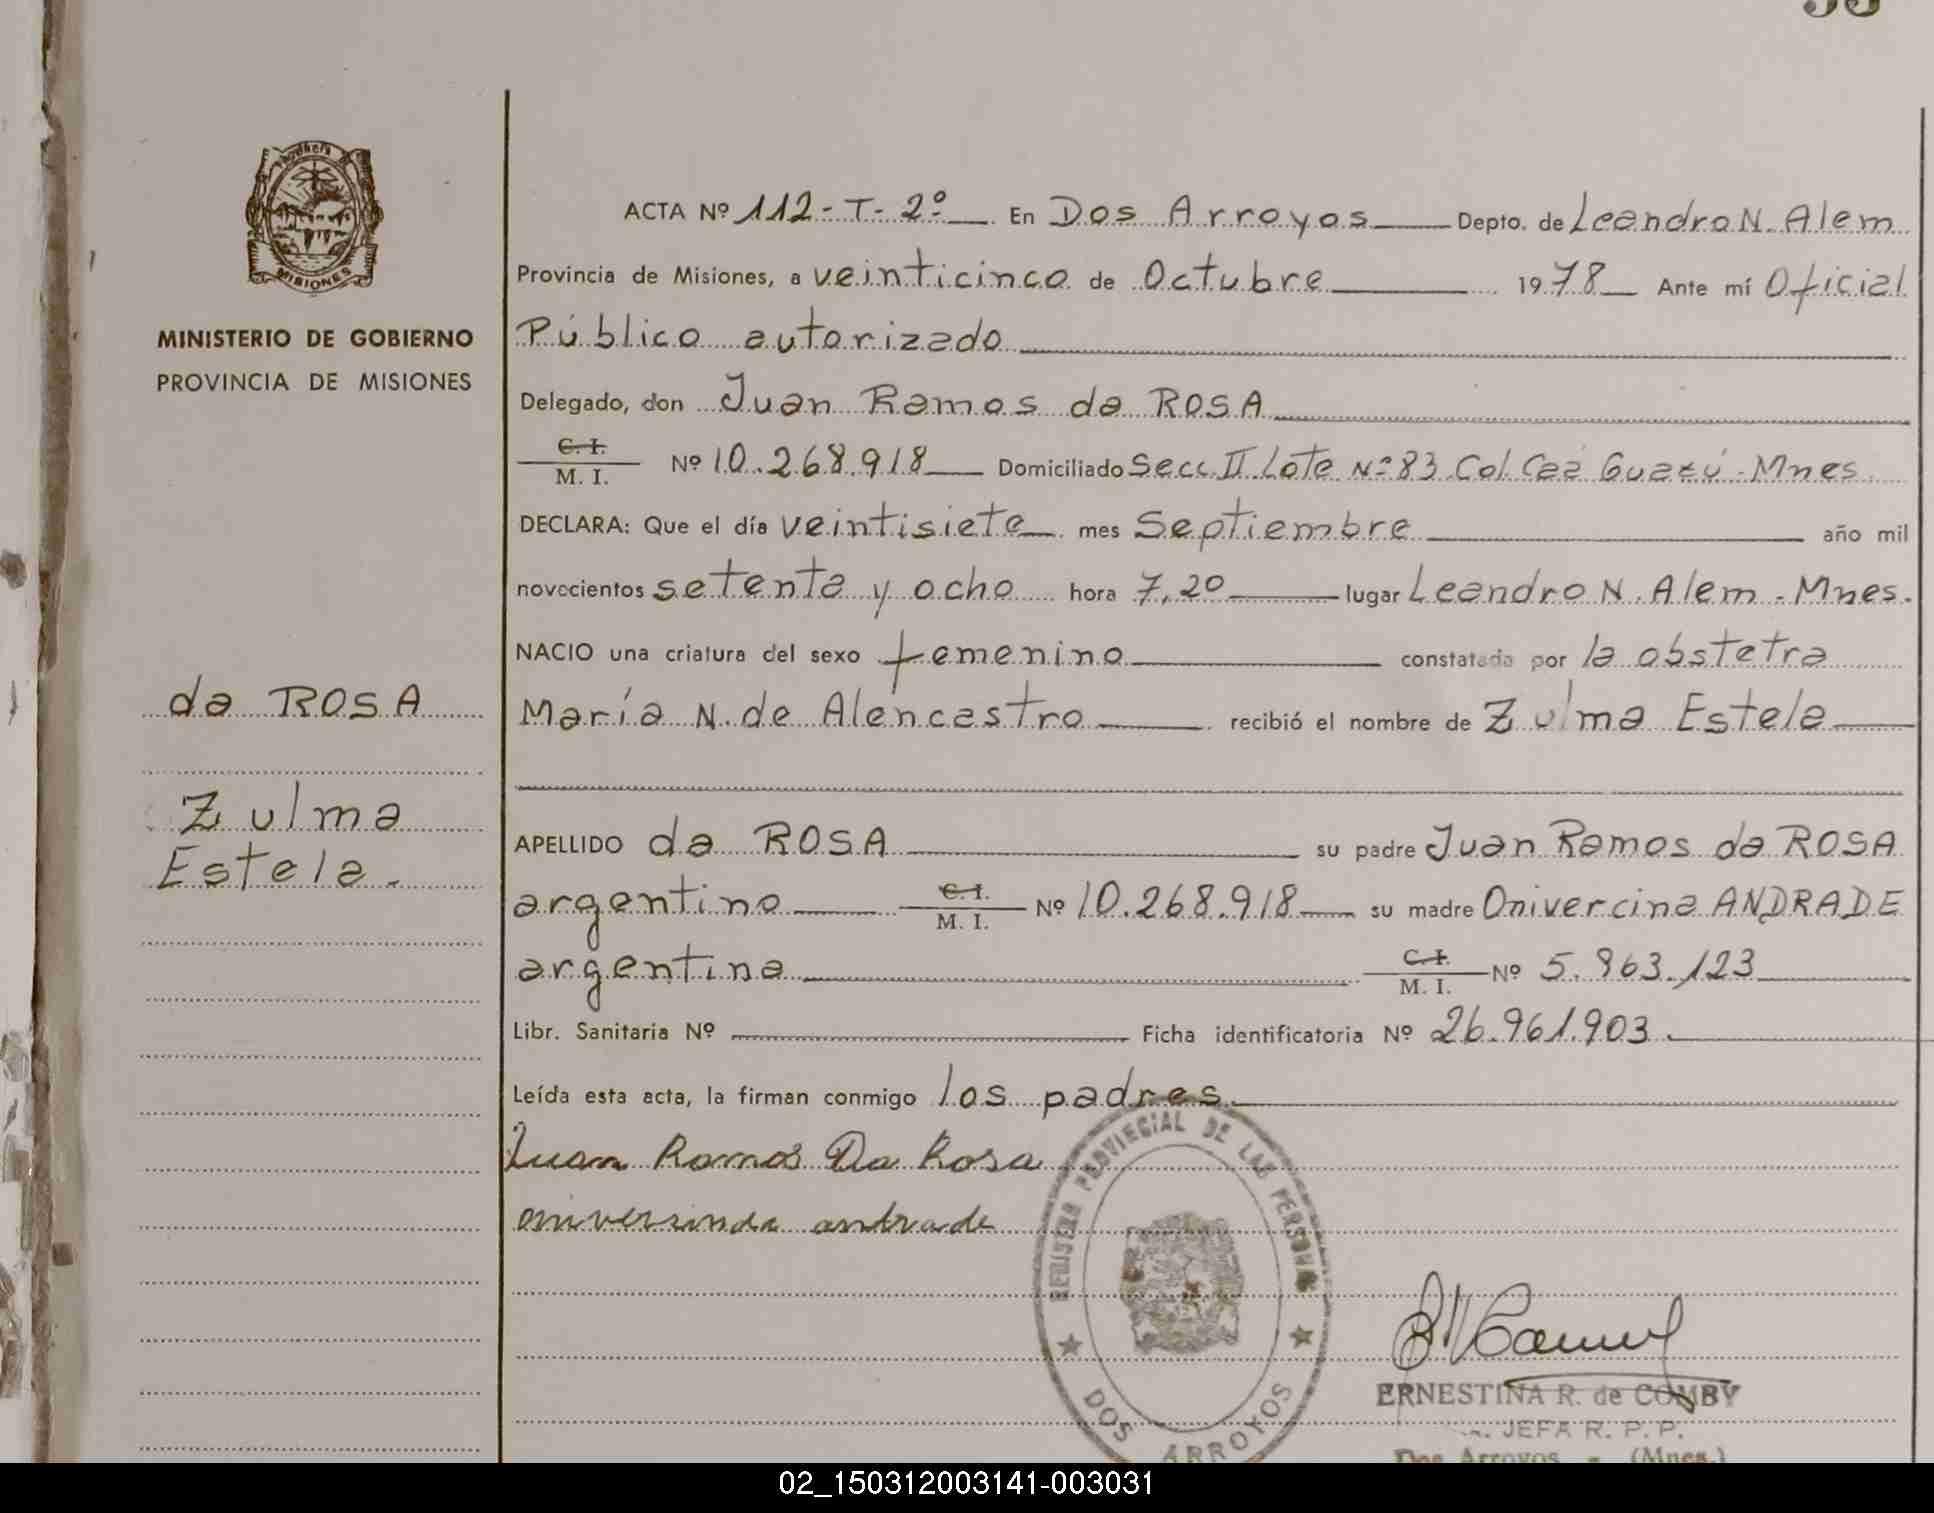 MISIONES
MINISTERIO DE GOBIERNO
PROVINCIA DE MISIONES
da ROSA
Zulma
Estela.
ACTA Nº 112-T-2º En Dos Arroyos Depto. de Leandro N. Alem
Provincia de Misiones, a veinticinco de Octubre 1978 Ante mí Oficial
Público autorizado
Delegado, don Juan Ramos da ROSA
C. I.
M. I. Nº 10.268.918 Domiciliado Secc. II Lote Nº 83 Col. Caá Guazú - Mnes.
DECLARA: Que el día veintisiete mes Septiembre año mil
novecientos setenta y ocho hora 7,20 lugar Leandro N. Alem - Mnes.
NACIO una criatura del sexo femenino constatada por la obstetra
María N. de Alencastro recibió el nombre de Zulma Estela
APELLIDO da ROSA su padre Juan Ramos da ROSA
argentino C. I. M. I. Nº 10.268.918 su madre Onivercina ANDRADE
argentina C. I. M. I. Nº 5.963.123
Libr. Sanitaria Nº Ficha identificatoria Nº 26.961.903
Leída esta acta, la firman conmigo los padres
Juan Ramos Da Rosa
andrade
REGISTRO PROVINCIAL DE LAS PERSONAS
DOS ARROYOS
ERNESTINA R. de COMBY
JEFA R. P. P.
Dos Arroyos - (Mnes.)
02_150312003141-003031